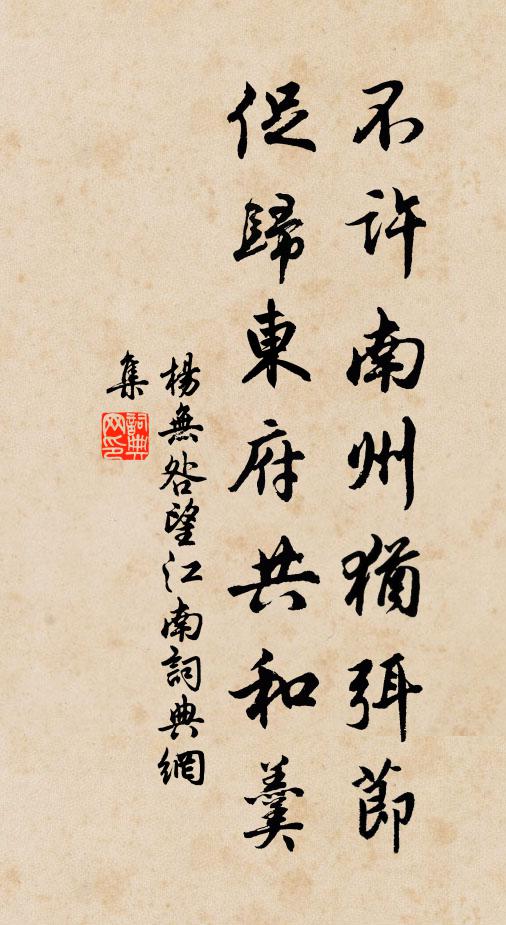 不許南州猶弭節
促歸東府共和羹
楊無咎望江南詞典網
集
詞典网印